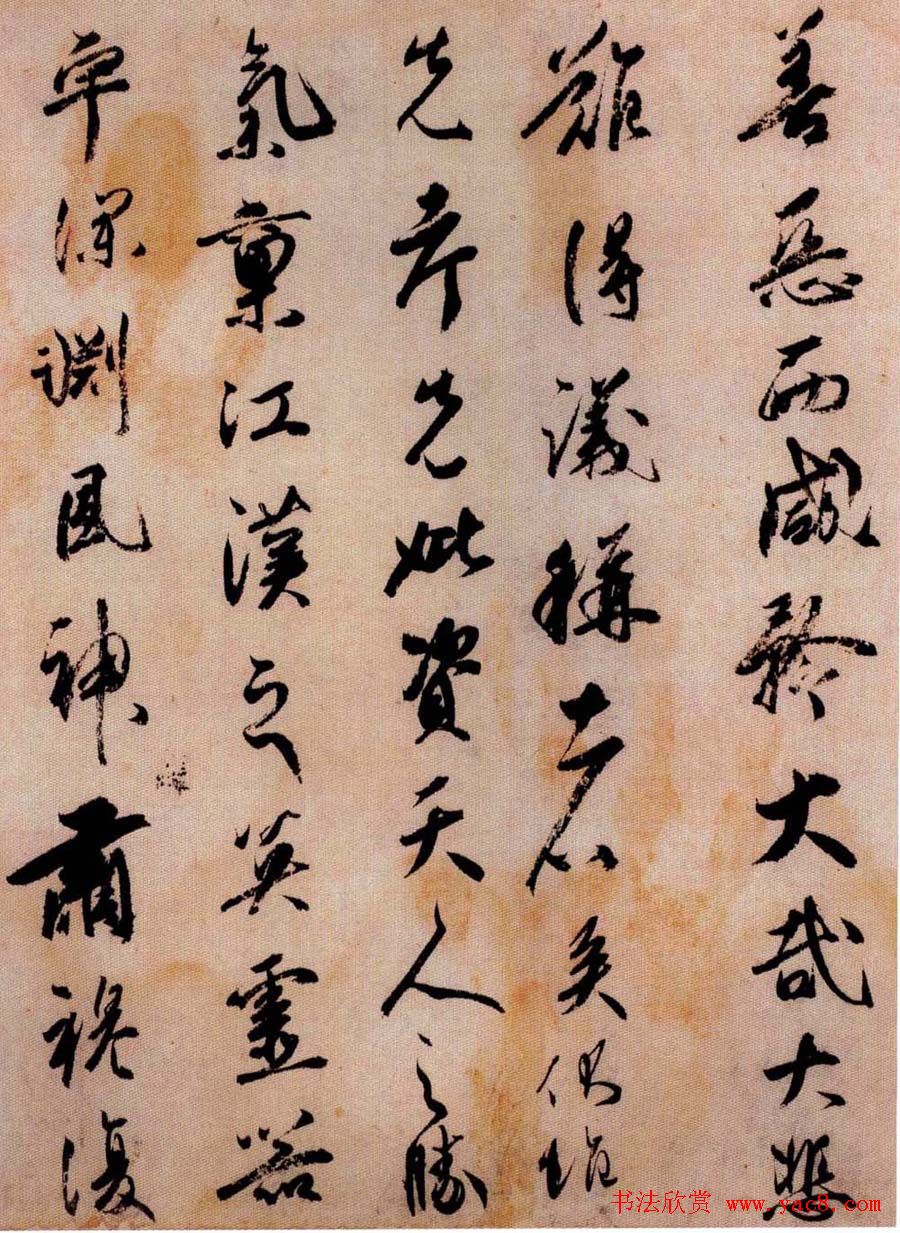 善惡而咸矜大哉大悲
難得議稱者矣伏惟
先考先妣資天人之勝
氣稟江漢之英靈器
宇深淵風神肅穆復
书法欣赏 www.yac8.com